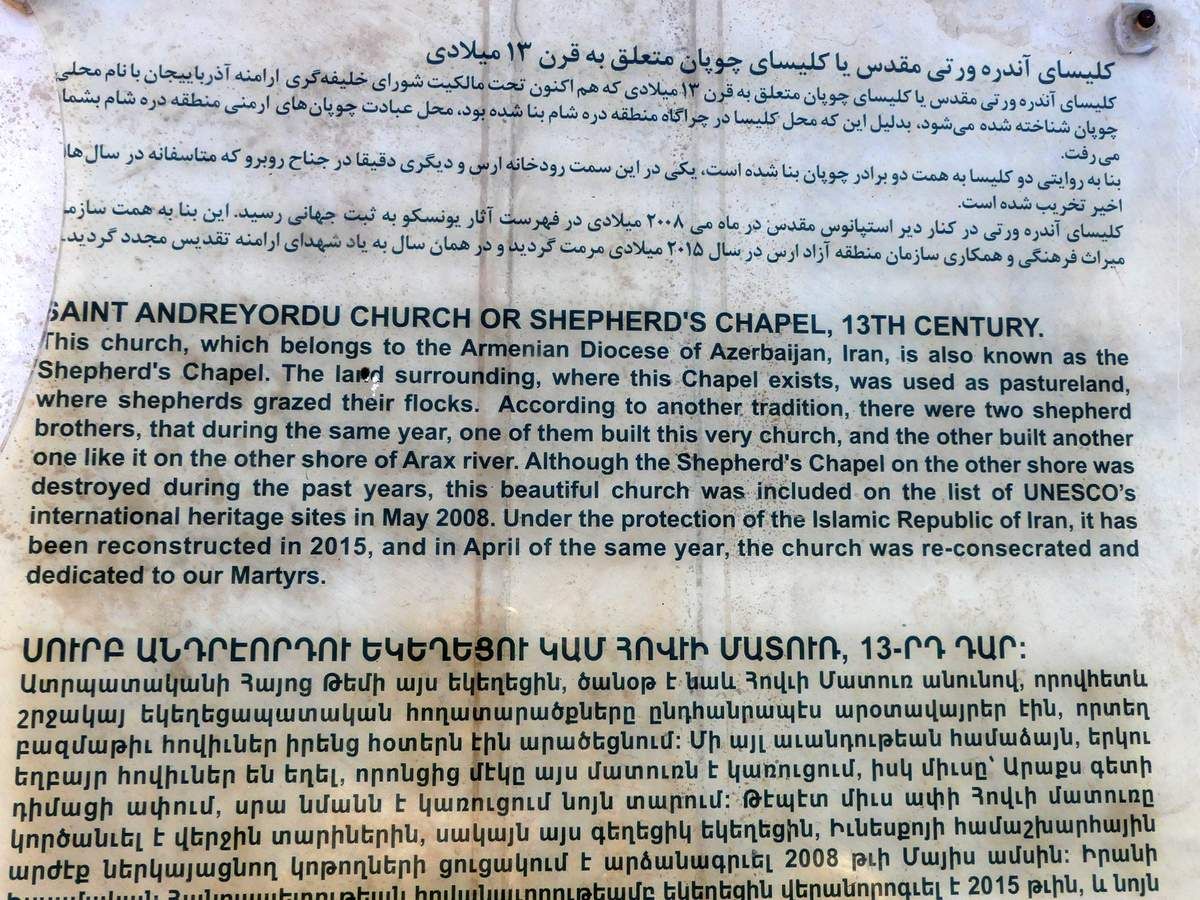 کلیسای آندره ورتی مقدس یا کلیسای چوپان متعلق به قرن ۱۳ میلادی
کلیسای آندره ورتی مقدس یا کلیسای چوپان متعلق به قرن ۱۳ میلادی که هم اکنون تحت مالکیت شورای خلیفه‌گری ارامنه آذربایجان با نام محلی
چوپان شناخته شده می‌شود، بدلیل این که محل کلیسا در چراگاه منطقه دره شام بنا شده بود، محل عبادت چوپان‌های ارمنی منطقه دره شام بشما
می‌رفت.
بنا به روایتی دو کلیسا به همت دو برادر چوپان بنا شده است، یکی در این سمت رودخانه ارس و دیگری دقیقا در جناح روبرو که متاسفانه در سال‌ها
اخیر تخریب شده است.
کلیسای آندره ورتی در کنار دیر استپانوس مقدس در ماه می ۲۰۰۸ میلادی در فهرست آثار یونسکو به ثبت جهانی رسید. این بنا به همت سازم
میراث فرهنگی و همکاری سازمان منطقه آزاد ارس در سال ۲۰۱۵ میلادی مرمت گردید و در همان سال به یاد شهدای ارامنه تقدیس مجدد گردید.
SAINT ANDREYORDU CHURCH OR SHEPHERD'S CHAPEL, 13TH CENTURY.
This church, which belongs to the Armenian Diocese of Azerbaijan, Iran, is also known as the
Shepherd's Chapel. The land surrounding, where this Chapel exists, was used as pastureland,
where shepherds grazed their flocks. According to another tradition, there were two shepherd
brothers, that during the same year, one of them built this very church, and the other built another
one like it on the other shore of Arax river. Although the Shepherd's Chapel on the other shore was
destroyed during the past years, this beautiful church was included on the list of UNESCO’s
international heritage sites in May 2008. Under the protection of the Islamic Republic of Iran, it has
been reconstructed in 2015, and in April of the same year, the church was re-consecrated and
dedicated to our Martyrs.
ՍՈՒՐԲ ԱՆԴՐԷՈՐԴՈՒ ԵԿԵՂԵՑՈՒ ԿԱՄ ՀՈՎՒԻ ՄԱՏՈՒՌ, 13-ՐԴ ԴԱՐ:
Ատրպատականի Հայոց Թեմի այս եկեղեցին, ծանօթ է նաև Հովւի Մատուռ անունով, որովհետև
շրջակայ եկեղեցապատական հողատարածքները ընդհանրապէս արօտավայրեր էին, որտեղ
բազմաթիւ հովիւներ իրենց հօտերն էին արածեցնում: Մի այլ աւանդութեան համաձայն, երկու
եղբայր հովիւներ են եղել, որոնցից մէկը այս մատուռն է կառուցում, իսկ միւսը՝ Արաքս գետի
դիմացի ափում, սրա նմանն է կառուցում նոյն տարում: Թէպէտ միւս ափի Հովւի մատուռը
կործանւել է վերջին տարիներին, սակայն այս գեղեցիկ եկեղեցին, Իւնեսքոյի համաշխարհային
արժէք ներկայացնող կոթողների ցուցակում է արձանագրւել 2008 թւի Մայիս ամսին: Իրանի
Իսլամական Հանրապետութեան հովանաւորութեամբ եկեղեցին վերանորոգւել է 2015 թւին, և նոյն